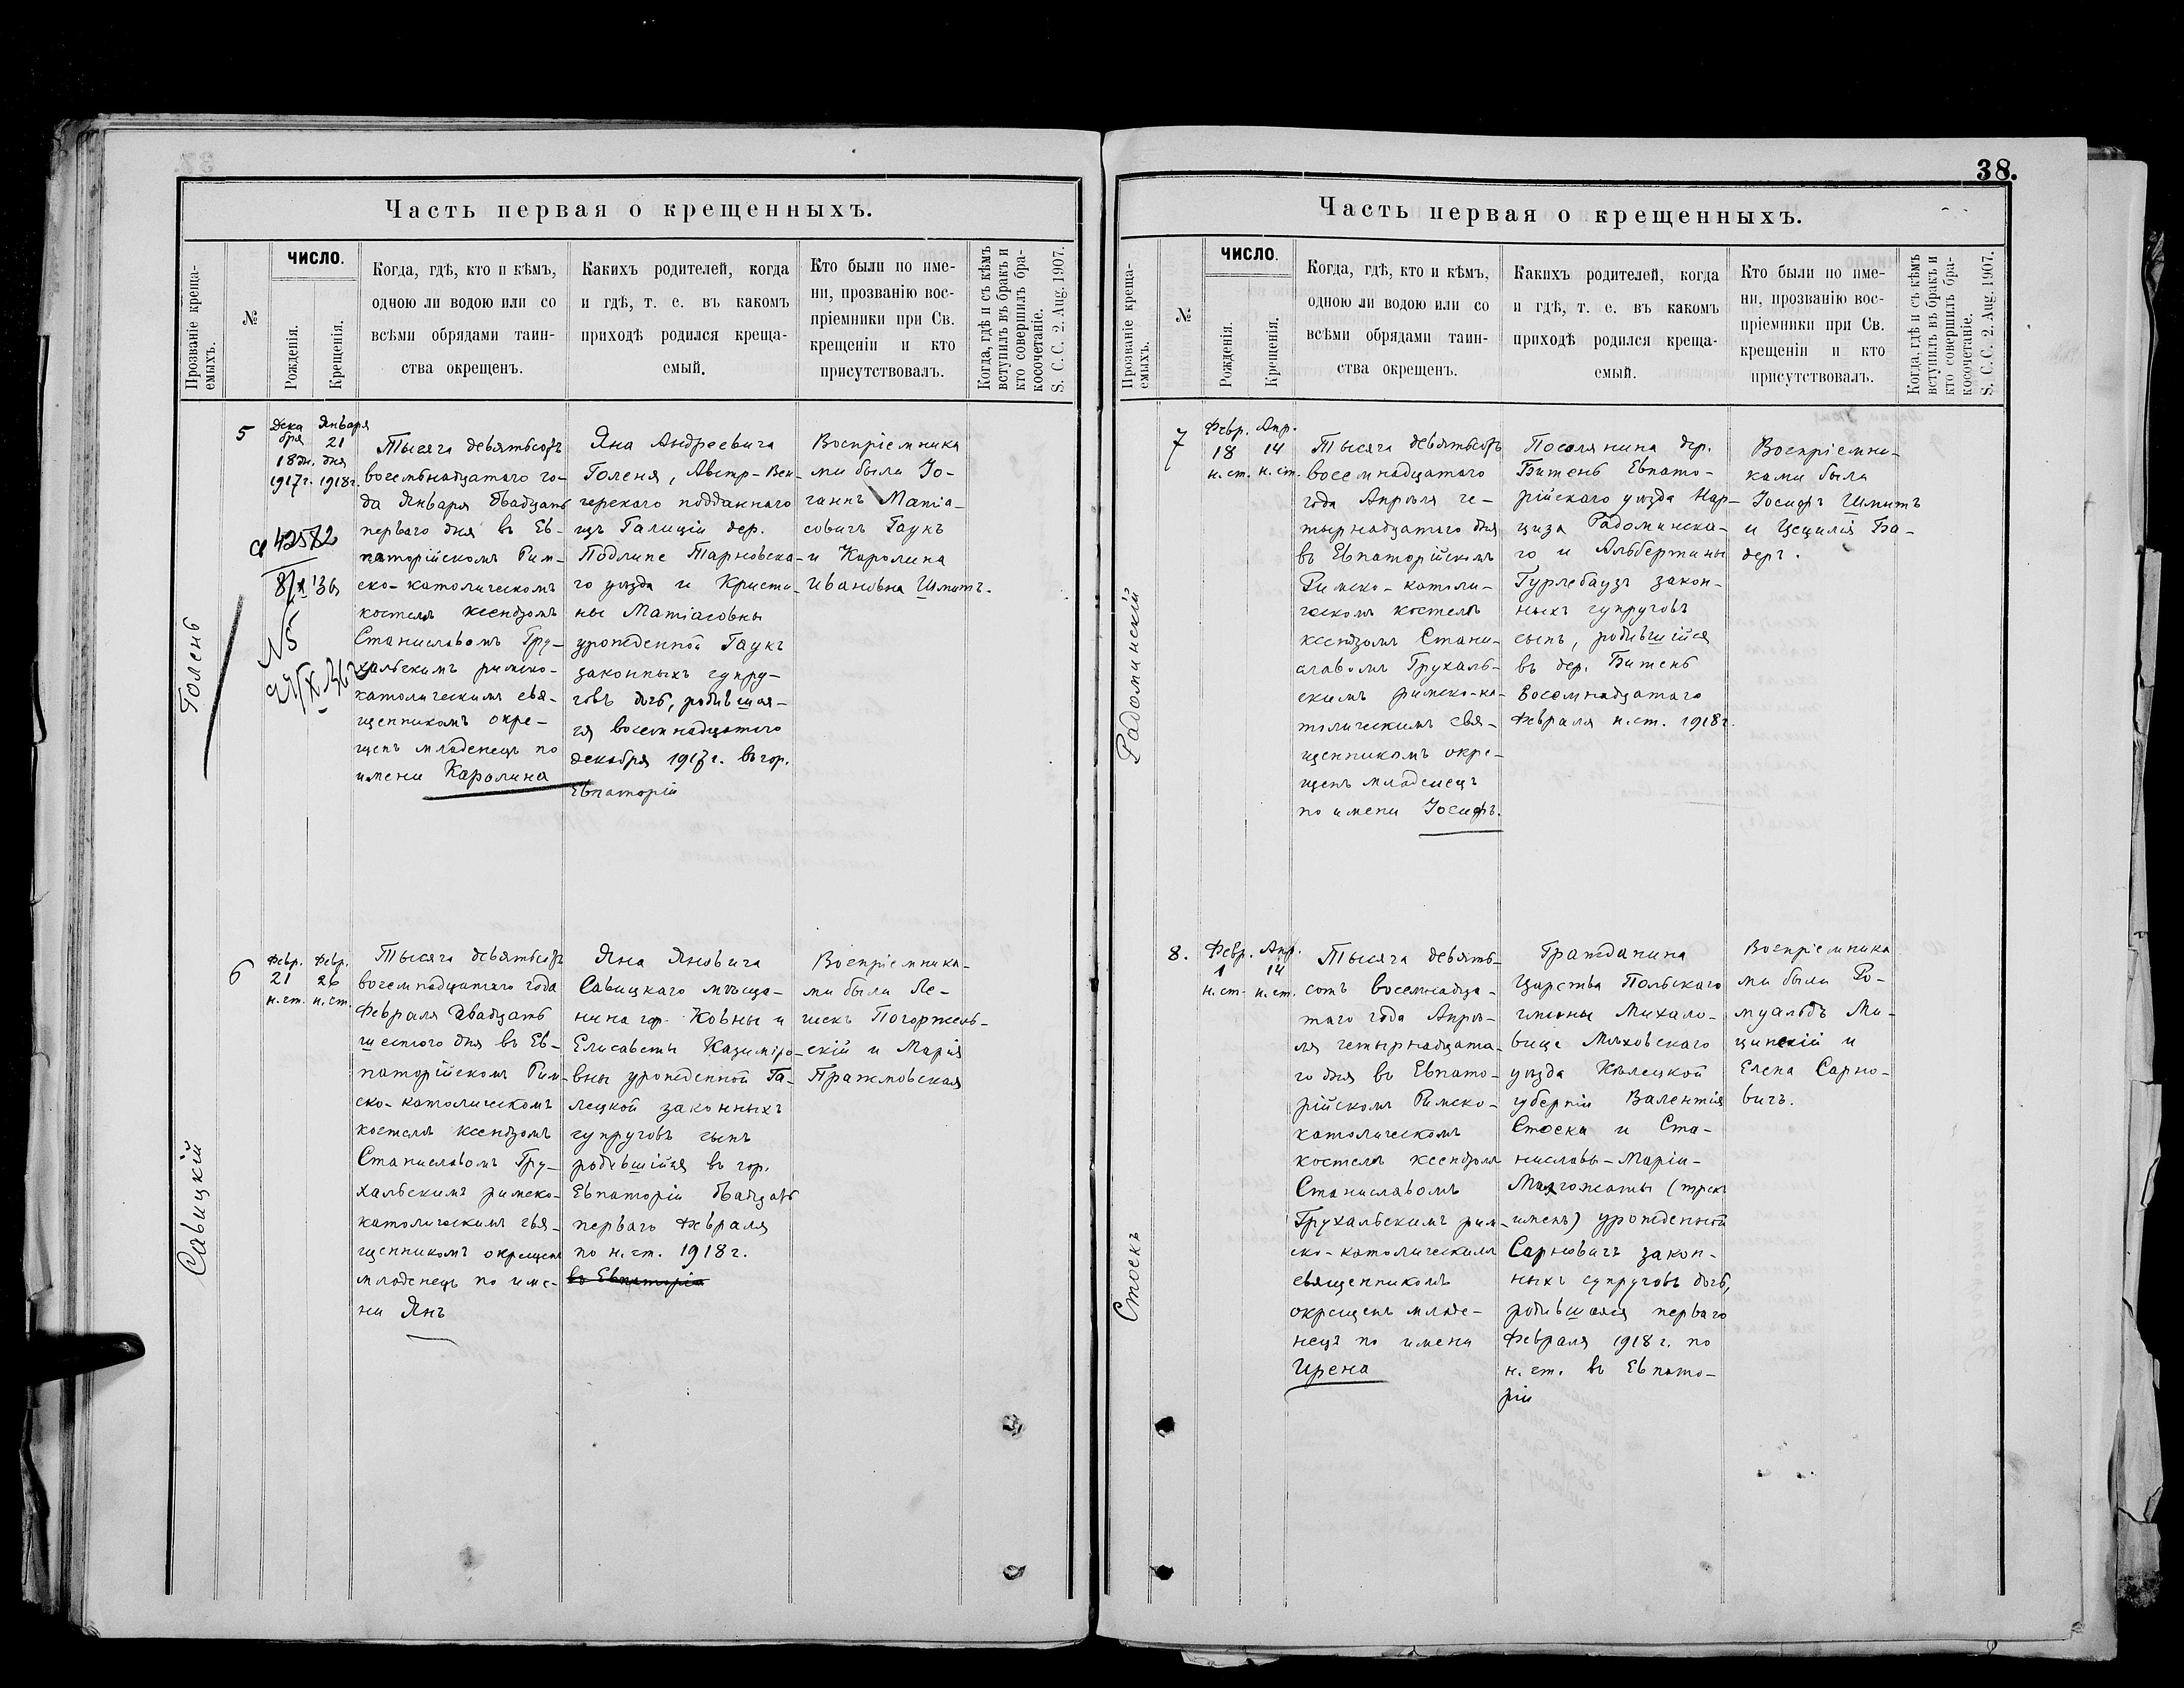 Часть первая о крещенныхъ.
Прозваніе креща-
емыхъ.
№
ЧИСЛО.
Рожденія.
Крещенія.
Когда, гдѣ, кто и кѣмъ,
одною ли водою или со
всѣми обрядами таин-
ства окрещенъ.
Какихъ родителей, когда
и гдѣ, т. е. въ какомъ
приходѣ родился креща-
емый.
Кто были по име-
ни, прозванію вос-
пріемники при Св.
крещеніи и кто
присутствовалъ.
Когда, гдѣ и съ кѣмъ
вступилъ въ бракъ и
кто совершилъ бра-
косочетаніе.
S. C. C. 2. Aug. 1907.
Голень
5
Дека
бря
18 дн.
1917г.
Января
21
дня
1918г.
42582
N5
Тысяча девятьсотъ
восемьнадцатаго го-
да Января двадцать
перваго дня въ Ев-
паторійскомъ Рим-
ско-католическомъ
костелѣ ксендзомъ
Станиславомъ Гру-
хальскимъ римско-
католическимъ свя-
щенникомъ окре-
щенъ младенецъ по
имени Каролина
Яна Андреевича
Голеня, Австр-Вен-
герскаго подданнаго
изъ Галиціи дер.
Подлипе Тарновска-
го уѣзда и Кристи-
ны Матіасовны
урожденной Гаукъ
законныхъ супру-
говъ дочь, родившая-
ся восемнадцатаго
декабря 1917г. въ гор.
Евпаторіи
Воспріемника
ми были Іо-
ганнъ Матіа-
совичъ Гаукъ
и Каролина
Ивановна Шмитъ.
Савицкій
6
Февр.
21
н.ст.
Февр.
26
н.ст.
Тысяча девятьсотъ
восемнадцатаго года
Февраля двадцать
шестого дня въ Ев-
паторійскомъ Рим-
ско-католическомъ
костелѣ ксендзомъ
Станиславомъ Гру-
хальскимъ римско-
католическимъ свя-
щенникомъ окрещенъ
младенецъ по име-
ни Янъ
Яна Яновича
Савицкаго мѣща-
нина гор. Ковны и
Елисаветы Казиміро-
вны урожденной Га-
лецкой законныхъ
супруговъ сынъ
родившійся въ гор.
Евпаторіи двадцать
перваго Февраля
по н.ст. 1918г.
въ Евпаторіи
Воспріемника-
ми были Ле-
шекъ Погоржель-
скій и Марія
Пражмовская
38.
Часть первая о крещенныхъ.
Прозваніе креща-
емыхъ.
№
ЧИСЛО.
Рожденія.
Крещенія.
Когда, гдѣ, кто и кѣмъ,
одною ли водою или со
всѣми обрядами таин-
ства окрещенъ.
Какихъ родителей, когда
и гдѣ, т. е. въ какомъ
приходѣ родился креща-
емый.
Кто были по име-
ни, прозванію вос-
пріемники при Св.
крещеніи и кто
присутствовалъ.
Когда, гдѣ и съ кѣмъ
вступилъ въ бракъ и
кто совершилъ бра-
косочетаніе.
S. C. C. 2. Aug. 1907.
Радоминскій
7
Февр.
18
н.ст.
Апр.
14
н.ст.
Тысяча девятьсотъ
восемнадцатаго
года Апрѣля че-
тырнадцатаго дня
въ Евпаторійскомъ
Римско-католи-
ческомъ костелѣ
ксендзомъ Стани-
славомъ Грухаль-
скимъ римско-ка-
толическимъ свя-
щенникомъ окре-
щенъ младенецъ
по имени Іосифъ.
Поселянина дер.
Битень Евпато-
рійскаго уѣзда Нар-
циза Радоминска-
го и Альбертины
Гурлебаузъ закон-
ныхъ супруговъ
сынъ, родившійся
въ дер. Битень
Восемнадцатаго
Февраля н.ст. 1918г.
Воспріемни-
ками были
Іосифъ Шмитъ
и Цецилія Ба-
деръ.
Стоекъ
8.
Февр.
1
н.ст.
Апр.
14
н.ст.
Тысяча девять-
сотъ восемнадца-
таго года Апрѣ-
ля четырнадцата-
го дня въ Евпато-
рійскомъ Римско-
католическомъ
костелѣ ксендзомъ
Станиславомъ
Грухальскимъ рим-
ско-католическимъ
священникомъ
окрещенъ младе-
нецъ по имени
Ирена
Гражданина
Царства Польскаго
гмины Михало-
вице Мѣховскаго
уѣзда Кѣлецкой
губерніи Валентія
Стоека и Ста-
ниславы-Маріи-
Малгожаты (трехъ
именъ) урожденной
Сарновичъ закон-
ныхъ супруговъ дочь,
родившаяся перваго
Февраля 1918г. по
н.ст. въ Евпато-
ріи
Воспріемника
ми были Ро-
муальдъ Ми-
цинскій и
Елена Сарно-
вичъ.